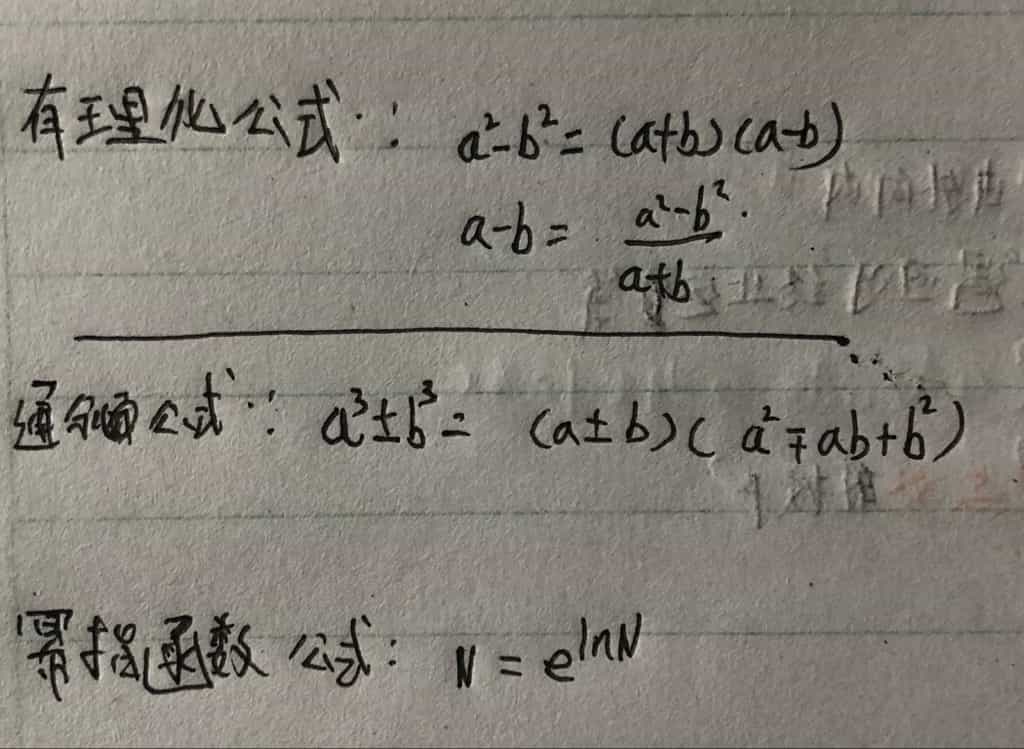 有理化公式: a²-b²=(a+b)(a-b)
a-b= \frac{a²-b²}{a+b}
通 公式: a³±b³= (a±b)(a²∓ab+b²)
幂指函数公式: N=e^{lnN}